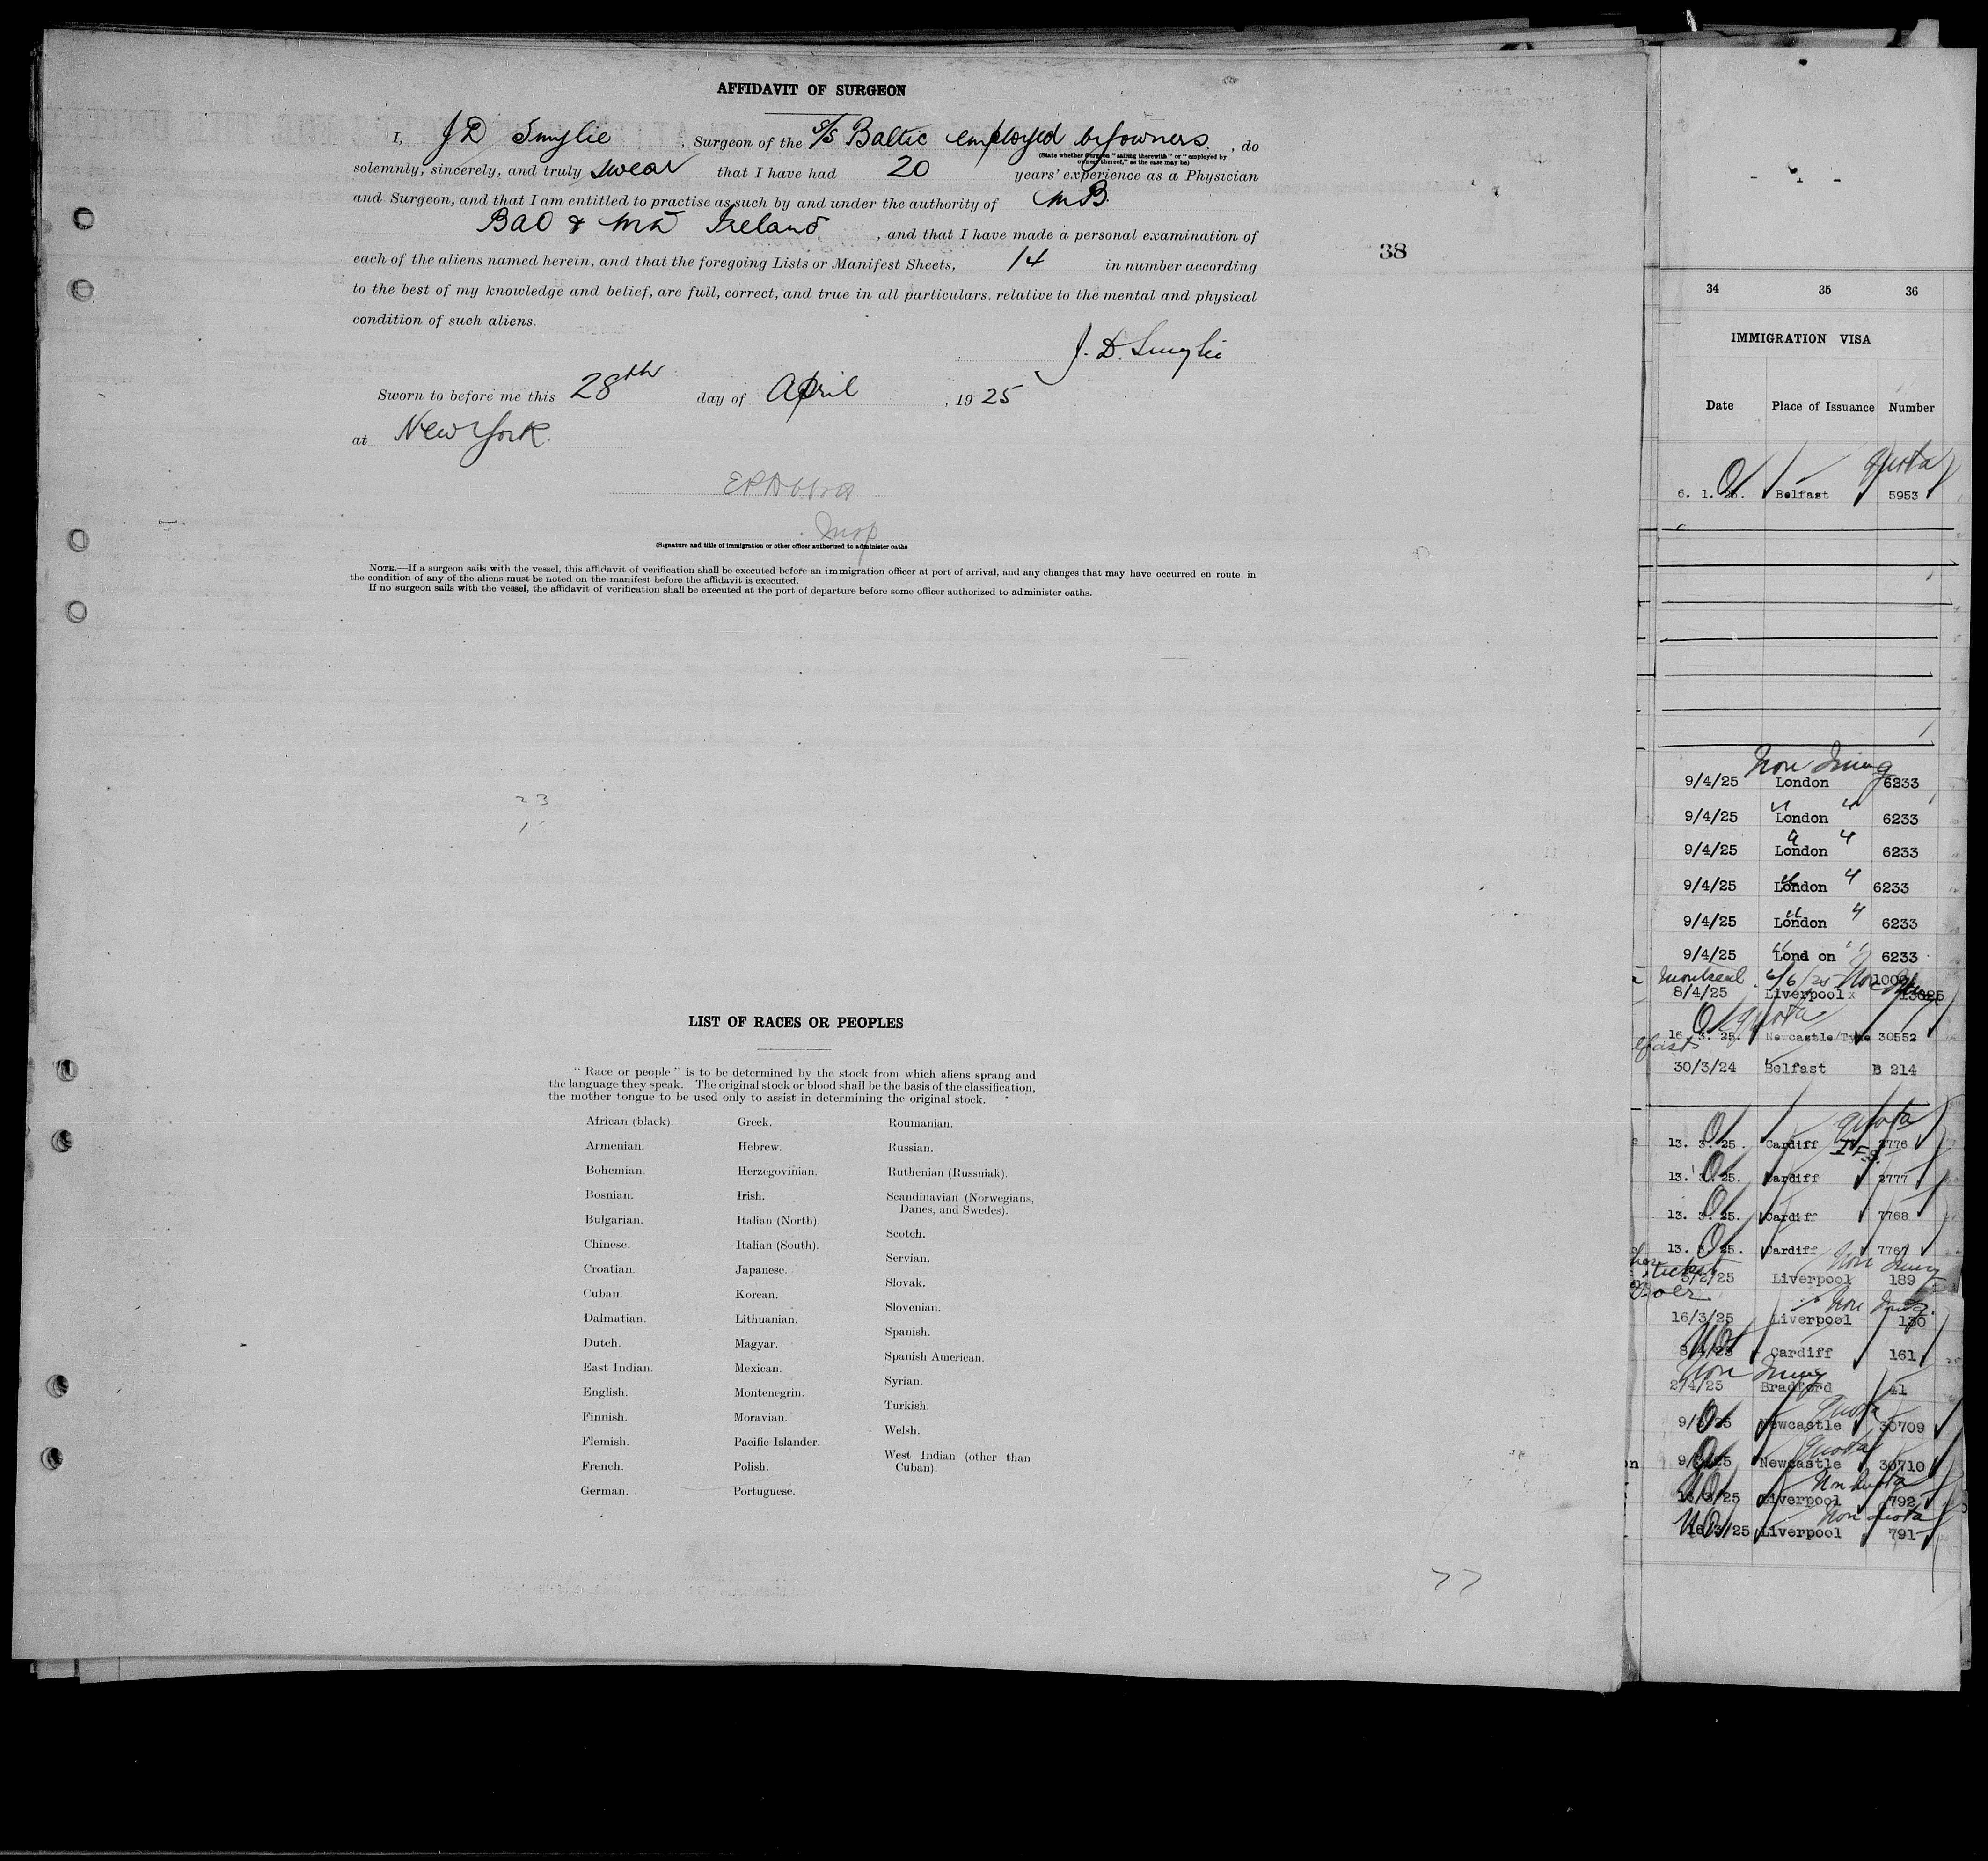 AFFIDAVIT OF SURGEON
I, J D Smylie, Surgeon of the S/S Baltic employed by owners. , do
(State whether Surgeon "sailing therewith" or "employed by
owners thereof," as the case may be)
solemnly, sincerely, and truly swear that I have had 20 years' experience as a Physician
and Surgeon, and that I am entitled to practise as such by and under the authority of MB.
BAO & Ireland , and that I have made a personal examination of
each of the aliens named herein, and that the foregoing Lists or Manifest Sheets, 14 in number according
to the best of my knowledge and belief, are full, correct, and true in all particulars, relative to the mental and physical
condition of such aliens.
J. D. Smylie
Sworn to before me this 28th day of April , 19 25
at New York.
Insp
(Signature and title of immigration or other officer authorized to administer oaths
NOTE.—If a surgeon sails with the vessel, this affidavit of verification shall be executed before an immigration officer at port of arrival, and any changes that may have occurred en route in
the condition of any of the aliens must be noted on the manifest before the affidavit is executed.
If no surgeon sails with the vessel, the affidavit of verification shall be executed at the port of departure before some officer authorized to administer oaths.
38
23
LIST OF RACES OR PEOPLES
"Race or people" is to be determined by the stock from which aliens sprang and
the language they speak. The original stock or blood shall be the basis of the classification,
the mother tongue to be used only to assist in determining the original stock.
African (black).
Armenian.
Bohemian.
Bosnian.
Bulgarian.
Chinese.
Croatian.
Cuban.
Dalmatian.
Dutch.
East Indian.
English.
Finnish.
Flemish.
French.
German.
Greek.
Hebrew.
Herzegovinian.
Irish.
Italian (North).
Italian (South).
Japanese.
Korean.
Lithuanian.
Magyar.
Mexican.
Montenegrin.
Moravian.
Pacific Islander.
Polish.
Portuguese.
Roumanian.
Russian.
Ruthenian (Russniak).
Scandinavian (Norwegians,
Danes, and Swedes).
Scotch.
Servian.
Slovak.
Slovenian.
Spanish.
Spanish American.
Syrian.
Turkish.
Welsh.
West Indian (other than
Cuban).
77
34 35 36
IMMIGRATION VISA
Date Place of Issuance Number
Quota
6. 1. 25. Belfast 5953
Non Immig
9/4/25 London 6233
9/4/25 London 6233
9/4/25 London 6233
9/4/25 London 6233
9/4/25 London 6233
9/4/25 Lond on 6233
Montreal
8/4/25 Liverpool
Quota
16. 3. 25. Newcastle/Tyne 30552
30/3/24 Belfast B 214
Quota
13. 3. 25. Cardiff 7776
I F S.
13. 3. 25. Cardiff 7777
13. 3. 25. Cardiff 7768
13. 3. 25. Cardiff 7767
Non Immig
Liverpool 189
Non Immig.
16/3/25 Liverpool 130
Cardiff 161
Non Immig
2/4/25 Bradford 41
Quota
Newcastle 30709
Quota
Newcastle 30710
Non Quota
16/3/25 Liverpool 792
Non Quota
16/3/25 Liverpool 791